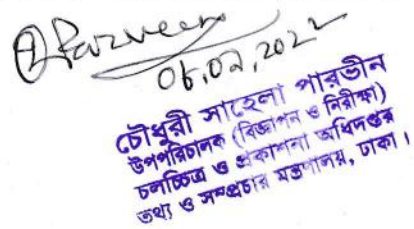 Parveen
06.02.2022
চৌধুরী সাহেলা পারভীন
উপপরিচালক (বিজ্ঞাপন ও নিরীক্ষা)
চলচ্চিত্র ও প্রকাশনা অধিদপ্তর
তথ্য ও সম্প্রচার মন্ত্রণালয়, ঢাকা।